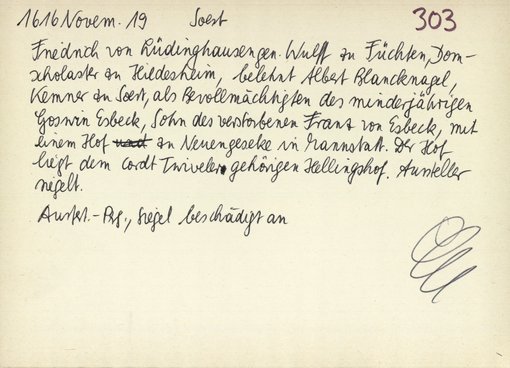 1616 Novem. 19 Soest 303
Friedrich von Lüdinghausen gen. Wulff zu Füchten, Dom-
scholaster zu Hildesheim, belehnt Albert Blancknagel,
Kemner zu Soest, als Bevollmächtigten des minderjährigen
Goswin Esbeck, Sohn des verstorbenen Franz von Esbeck, mit
einem Hof und zu Neuengeseke in Mannstatt. Der Hof
liegt dem Cordt Twiveler gehörigen Hellingshof. Aussteller
siegelt.
Ausf.-Prg., Siegel beschädigt an